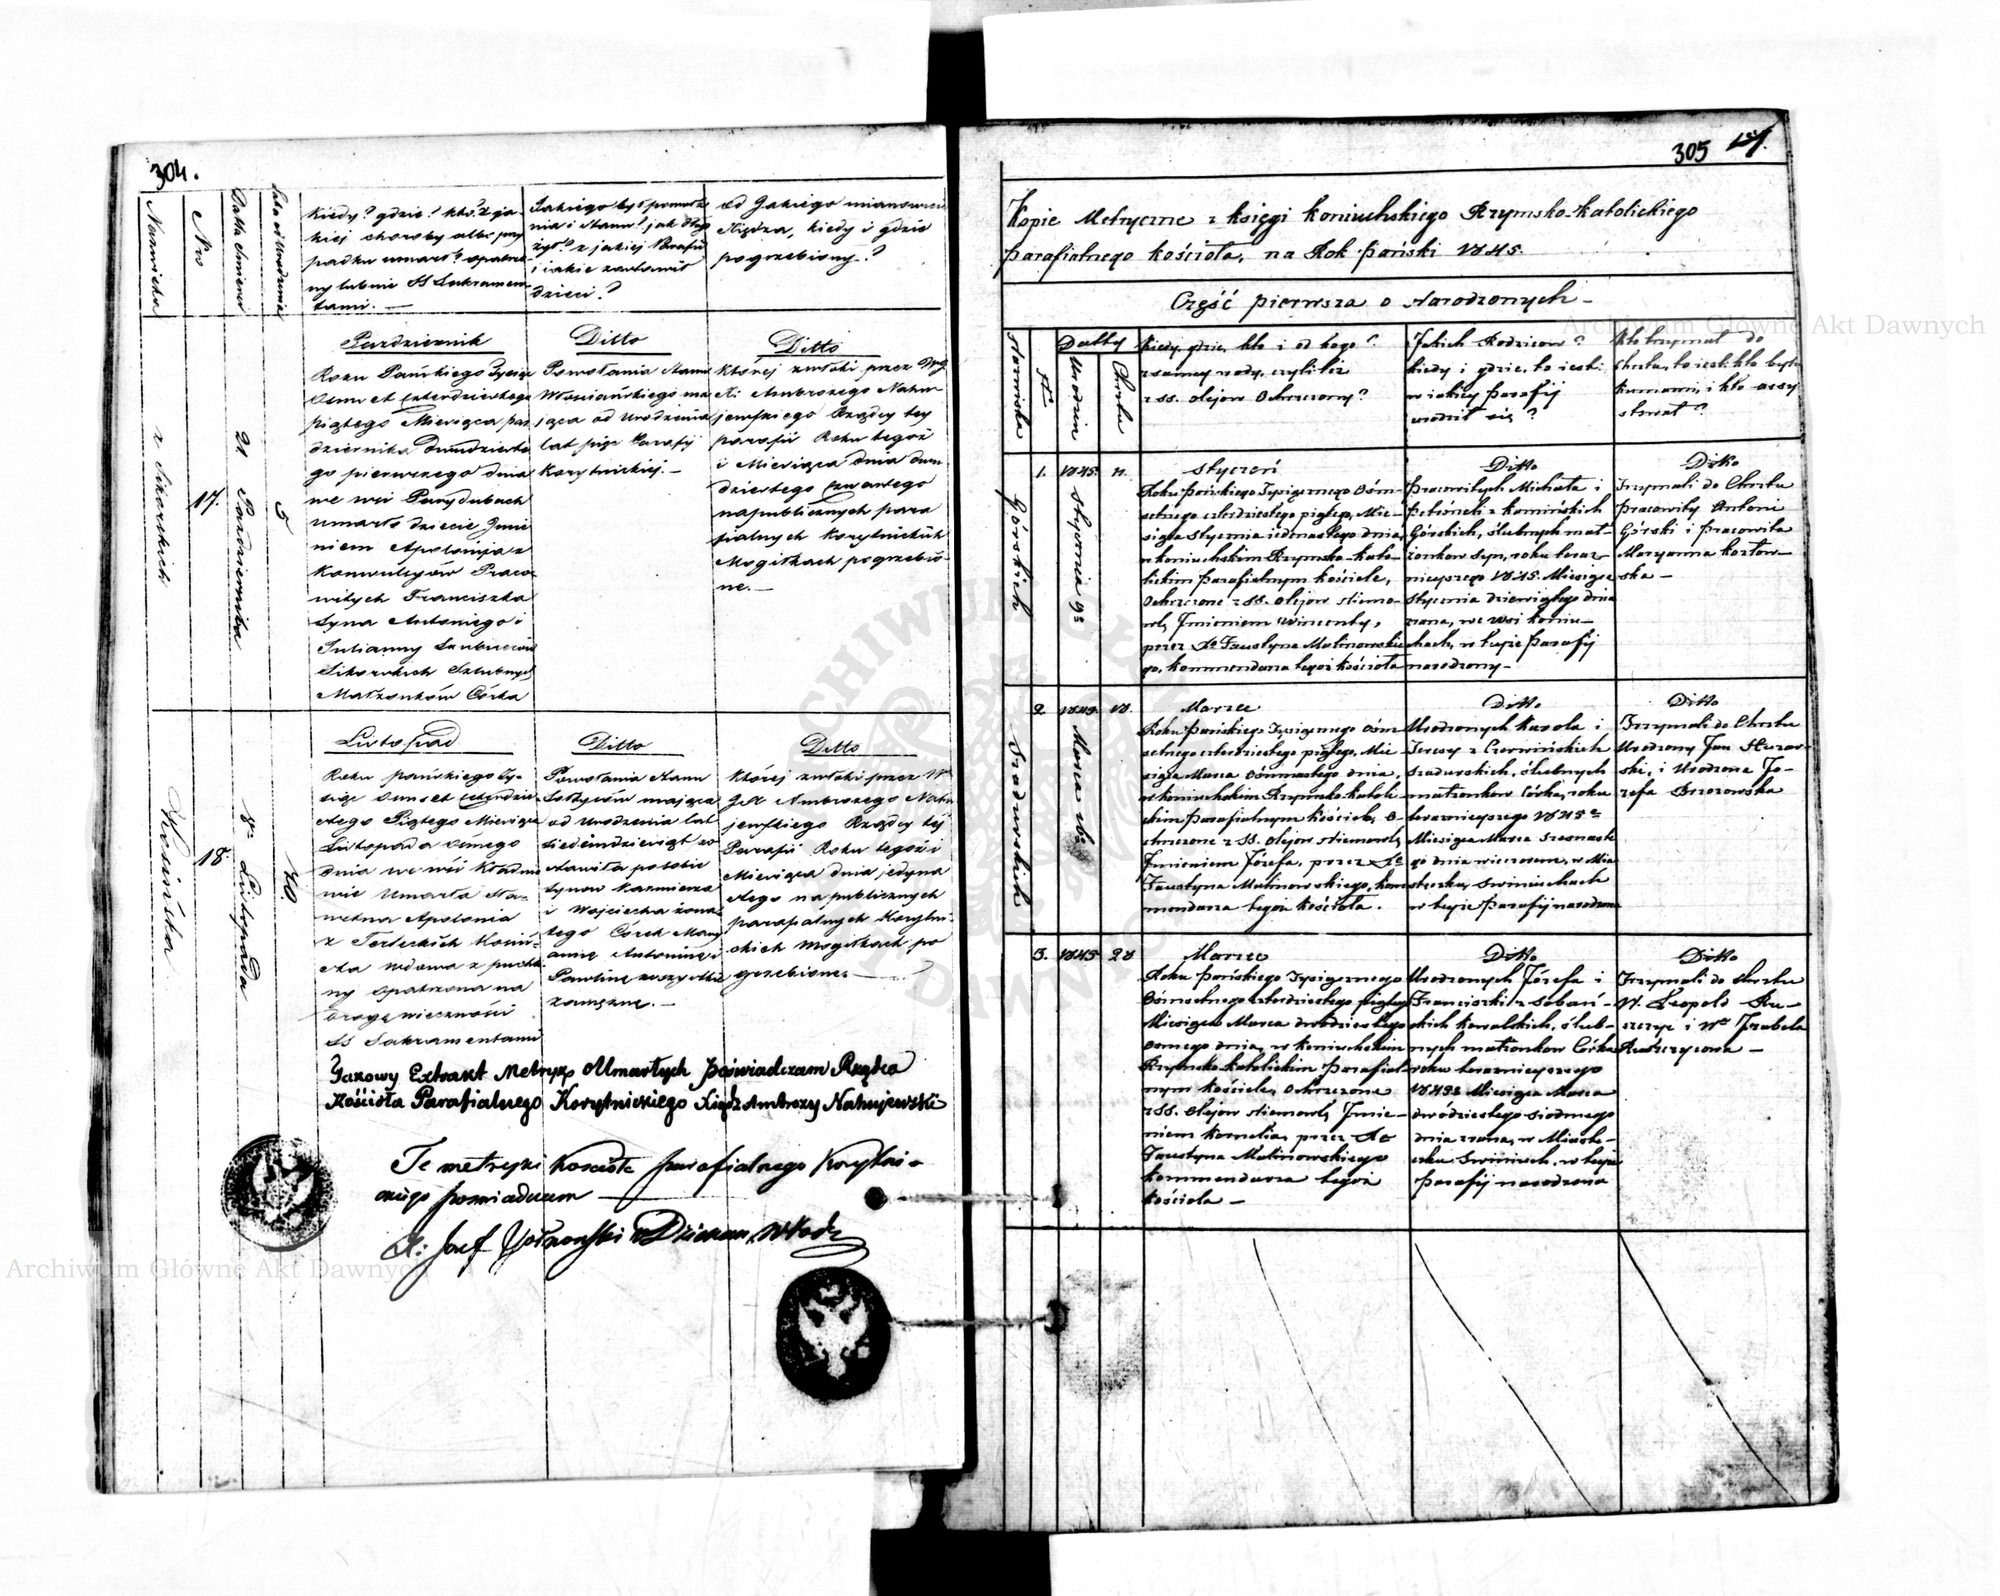 304.
Nazwiska
No
Datta śmierci
Lata od Urodzenia
Kiedy? gdzie? kto? z ja-
kiej choroby albo przy
padku umarł? opatrzo-
ny lub nie SS Sakramen
tami. —
Jakiego był powoła
nia i stanu? jak długo
żył? z jakiej Parafii
i jakie zostawił
dzieci?
od Jakiego mianowicie
Xiędza, kiedy i gdzie
pogrzebiony?
z Sikorskich
17.
21 Października
5
Pazdziernik
Roku Pańskiego Tysiąc
Osmset czterdziestego
piątego Miesiąca paz
dziernika dwudzieste
go pierwszego dnia
we wsi
umarło dziecie Jmie
niem Apolonija z
Konwulsyów Praco
witych Franciszka
Syna Antoniego i
Julianny
Sikorskich Szlubnych
Małżonków Córka
Ditto
Powołania stanu
Włosciańskiego ma
jąca od Urodzenia
lat pięć Parafij
Korytnickiej. —
Ditto
której zwłoki przez
X: Ambrożego Nahu
jewskiego Rządcy tey
parafii Roku tegoż
i Miesiąca dnia dwu
dziestego czwartego
na publicznych para
fialnych Korytnickich
Mogiłkach pogrzebio
ne. —
Kosińska
18.
8go Listopada
70.
Listopad
Roku pańskiego Ty-
siąc osmset czterdzie
stego Piątego Miesiąca
Listopada ósmego
dnia we wsi
umarła Sza-
chetna Apolonia
z Terleckich Kosiń-
ska wdowa z puchli
ny opatrzona na
drogę wieczności
SS Sakramentami
Ditto
Powołania stanu
mająca
od Urodzenia lat
siedemdziesiąt zo
stawiła po sobie
synow Kazimierza
i Wojciecha żona
tego Córek Mary
annę Antoninę i
Paulinę
zamężne. —
Ditto
której zwłoki przez W
JX Ambrożego Nahu
jewskiego Rządcy tej
Parafii Roku tegoż i
Miesiąca dnia jedyna
stego na publicznych
parafialnych Korytni-
ckich Mogiłkach po
grzebione. —
Extrakt Metryk Umarłych poświadczam Rządca
Kościoła Parafialnego Korytnickiego Xiądz Ambroży Nahujewski
Te metryki Kościoła parafialnego Korytni-
ckiego poswiadczam —
X: Josef
305
Kopie Metryczne z księgi koniuchskiego Rzymsko-katolickiego
parafialnego kościoła, na Rok pański 1845.
Część pierwsza o Narodzonych —
Nazwiska
No
Datty
Urodzin
Chrztu
Kiedy, gdzie, kto i od kogo?
z samey wody, czyli też
z SS. olejow Ochrzczony?
Jakich Rodzicow?
kiedy i gdzie, to iest:
w iakiey parafij
urodził się?
Kto trzymał do
chrztu, to iest: kto byli
kumami, i kto assy
stował?
Górskich
1.
1845. Stycznia 9o
11.
Styczeń
Roku pańskiego Tysiącznego Ośm-
setnego czterdziestego piątego, Mie-
siąca Stycznia iedenastego dnia,
w koniuchskim Rzymsko-kato-
lickim parafialnym kościele,
Ochrzczone z SS. olejow niemow-
lę Jmieniem Wincenty,
przez Xa Faustyna Malinowskie
go, kommendarza tegoż kościoła
Ditto
Pracowitych Michała i
Petroneli z kamińskich
Górskich, ślubnych mał-
żonkow syn, roku teraz-
nieyszego 1845. Miesiąca
Stycznia dziewiątego dnia
zrana, we wsi koniu-
chach, w teyże parafij
narodzony —
Ditto
Trzymali do Chrztu
Pracowity Antoni
Górski i pracowita
Maryanna kozłow-
ska —
Szadurskich
2.
1845. Marca 16o
18.
Marzec
Roku Pańskiego Tysiącznego Ośm
setnego czterdziestego piątego, Mie
siąca Marca ośmnastego dnia,
w koniuchskim Rzymsko-katoli
ckim parafialnym kościele, O-
chrzczone z SS. olejow niemowlę
Jmieniem Józefa, przez Xa
Faustyna Malinowskiego, kom
mendarza tegoż kościoła.
Ditto
Urodzonych karola i
Teresy z Czerwińskich
Szadurskich, ślubnych
małżonkow Córka, roku
teraznieyszego 1845o
Miesiąca Marca szesnaste
go dnia wieczorem, w Mia
steczku Swiniuchach
w teyże parafij narodzona
Ditto
Trzymali do Chrztu
Urodzony Jan
ski, i Urodzona Jó-
zefa Brzozowska
3.
1845
28
Marzec
Roku pańskiego Tysiącznego
Ośmsetnego czterdziestego piątego
Miesiąca Marca dwódziestego
osmego dnia, w koniuchskim
Rzymsko katolickim parafial
nym kościele, Ochrzczone
z SS. olejow niemowlę Jmie-
niem kornelia, przez Xa
Faustyna Malinowskiego
kommendarza tegoż
kościoła —
Ditto
Urodzonych Józefa i
Franciszki z Sobań-
skich kowalskich, ślub-
nych małżonkow Córka
roku teraznieyszego
1845o Miesiąca Marca
dwódziestego siodmego
dnia zrana, w Miaste-
czku Swiniuch, w teyże
parafij narodzona
Ditto
Trzymali do chrztu
W. Leopold Ru-
szczyc i Wa Jzabela
Ruszczycowa —
Archiwum Główne Akt Dawnych
Archiwum Główne Akt Dawnych